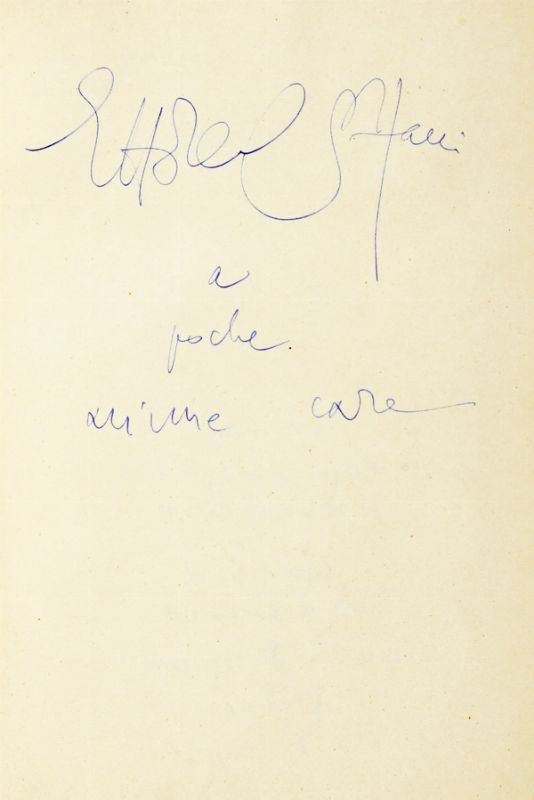 Ettore
a
poche
anime care